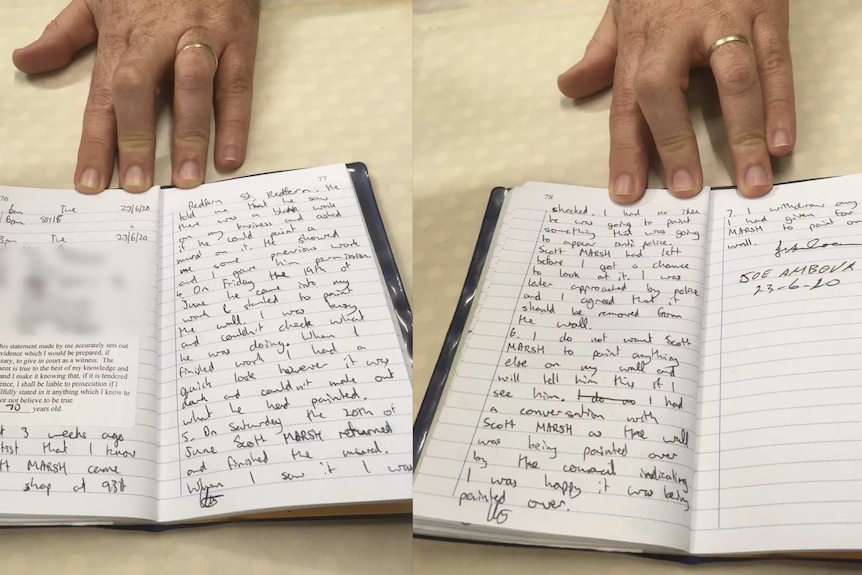 76
6am Tue 23/6/20
6pm
3pm Tue 23/6/20
his statement made by me accurately sets out
vidence which I would be prepared, if
sary, to give in court as a witness. The
ent is true to the best of my knowledge and
and I make it knowing that, if it is tendered
ence, I shall be liable to prosecution if I
lfully stated in it anything which I know to
or not believe to be true.
70 years old.
t 3 weeks ago
tist that I know
tt MARSH came
shop at 93A
77
Redfern St Redfern. He
told me that he saw
there was a blank wall
on my business and asked
if he could paint a
mural on it. He showed
me some previous work
and I gave him permission.
4. On Friday the 19th of
June he came into my
work & started to paint
the wall I was busy
and couldn't check what
he was doing. When I
finished work I had a
quick look however it was
dark and couldn't make out
what he had painted.
5. On Saturday the 20th of
June Scott MARSH returned
and finished the mural.
When I saw it I was
78
shocked. I had no idea
he was going to paint
something that was going
to appear anti police.
Scott MARSH had left
before I got a chance
to look at it. I was
later approached by police
and I agreed that it
should be removed from
the wall.
6. I do not want Scott
MARSH to paint anything
else on my wall and
will tell him this if I
see him. I do no I had
a conversation with
Scott MARSH as the wall
was being painted over
by the council indicating
I was happy it was being
painted over.
7. I withdraw any
I had given for
MARSH to paint on
wall.
JOE AMBOUK
23-6-20